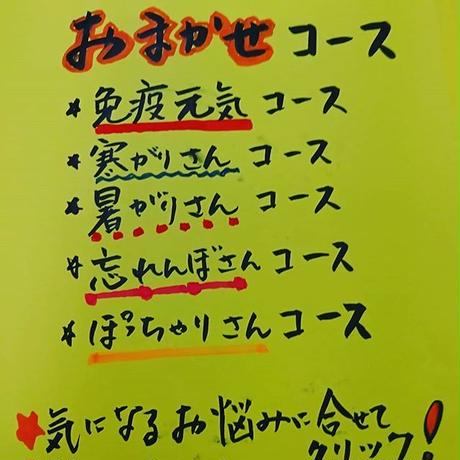 おまかせコース
*免疫元気コース
*寒がりさんコース
*暑がりさんコース
*忘れんぼさんコース
*ぽっちゃりさんコース
★気になるお悩みに合せて
クリック!